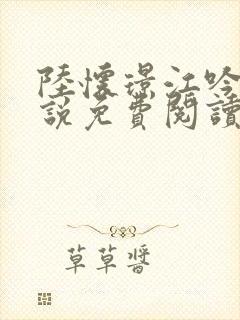 陸懷璟江吟
說免費閱讀
草草醬